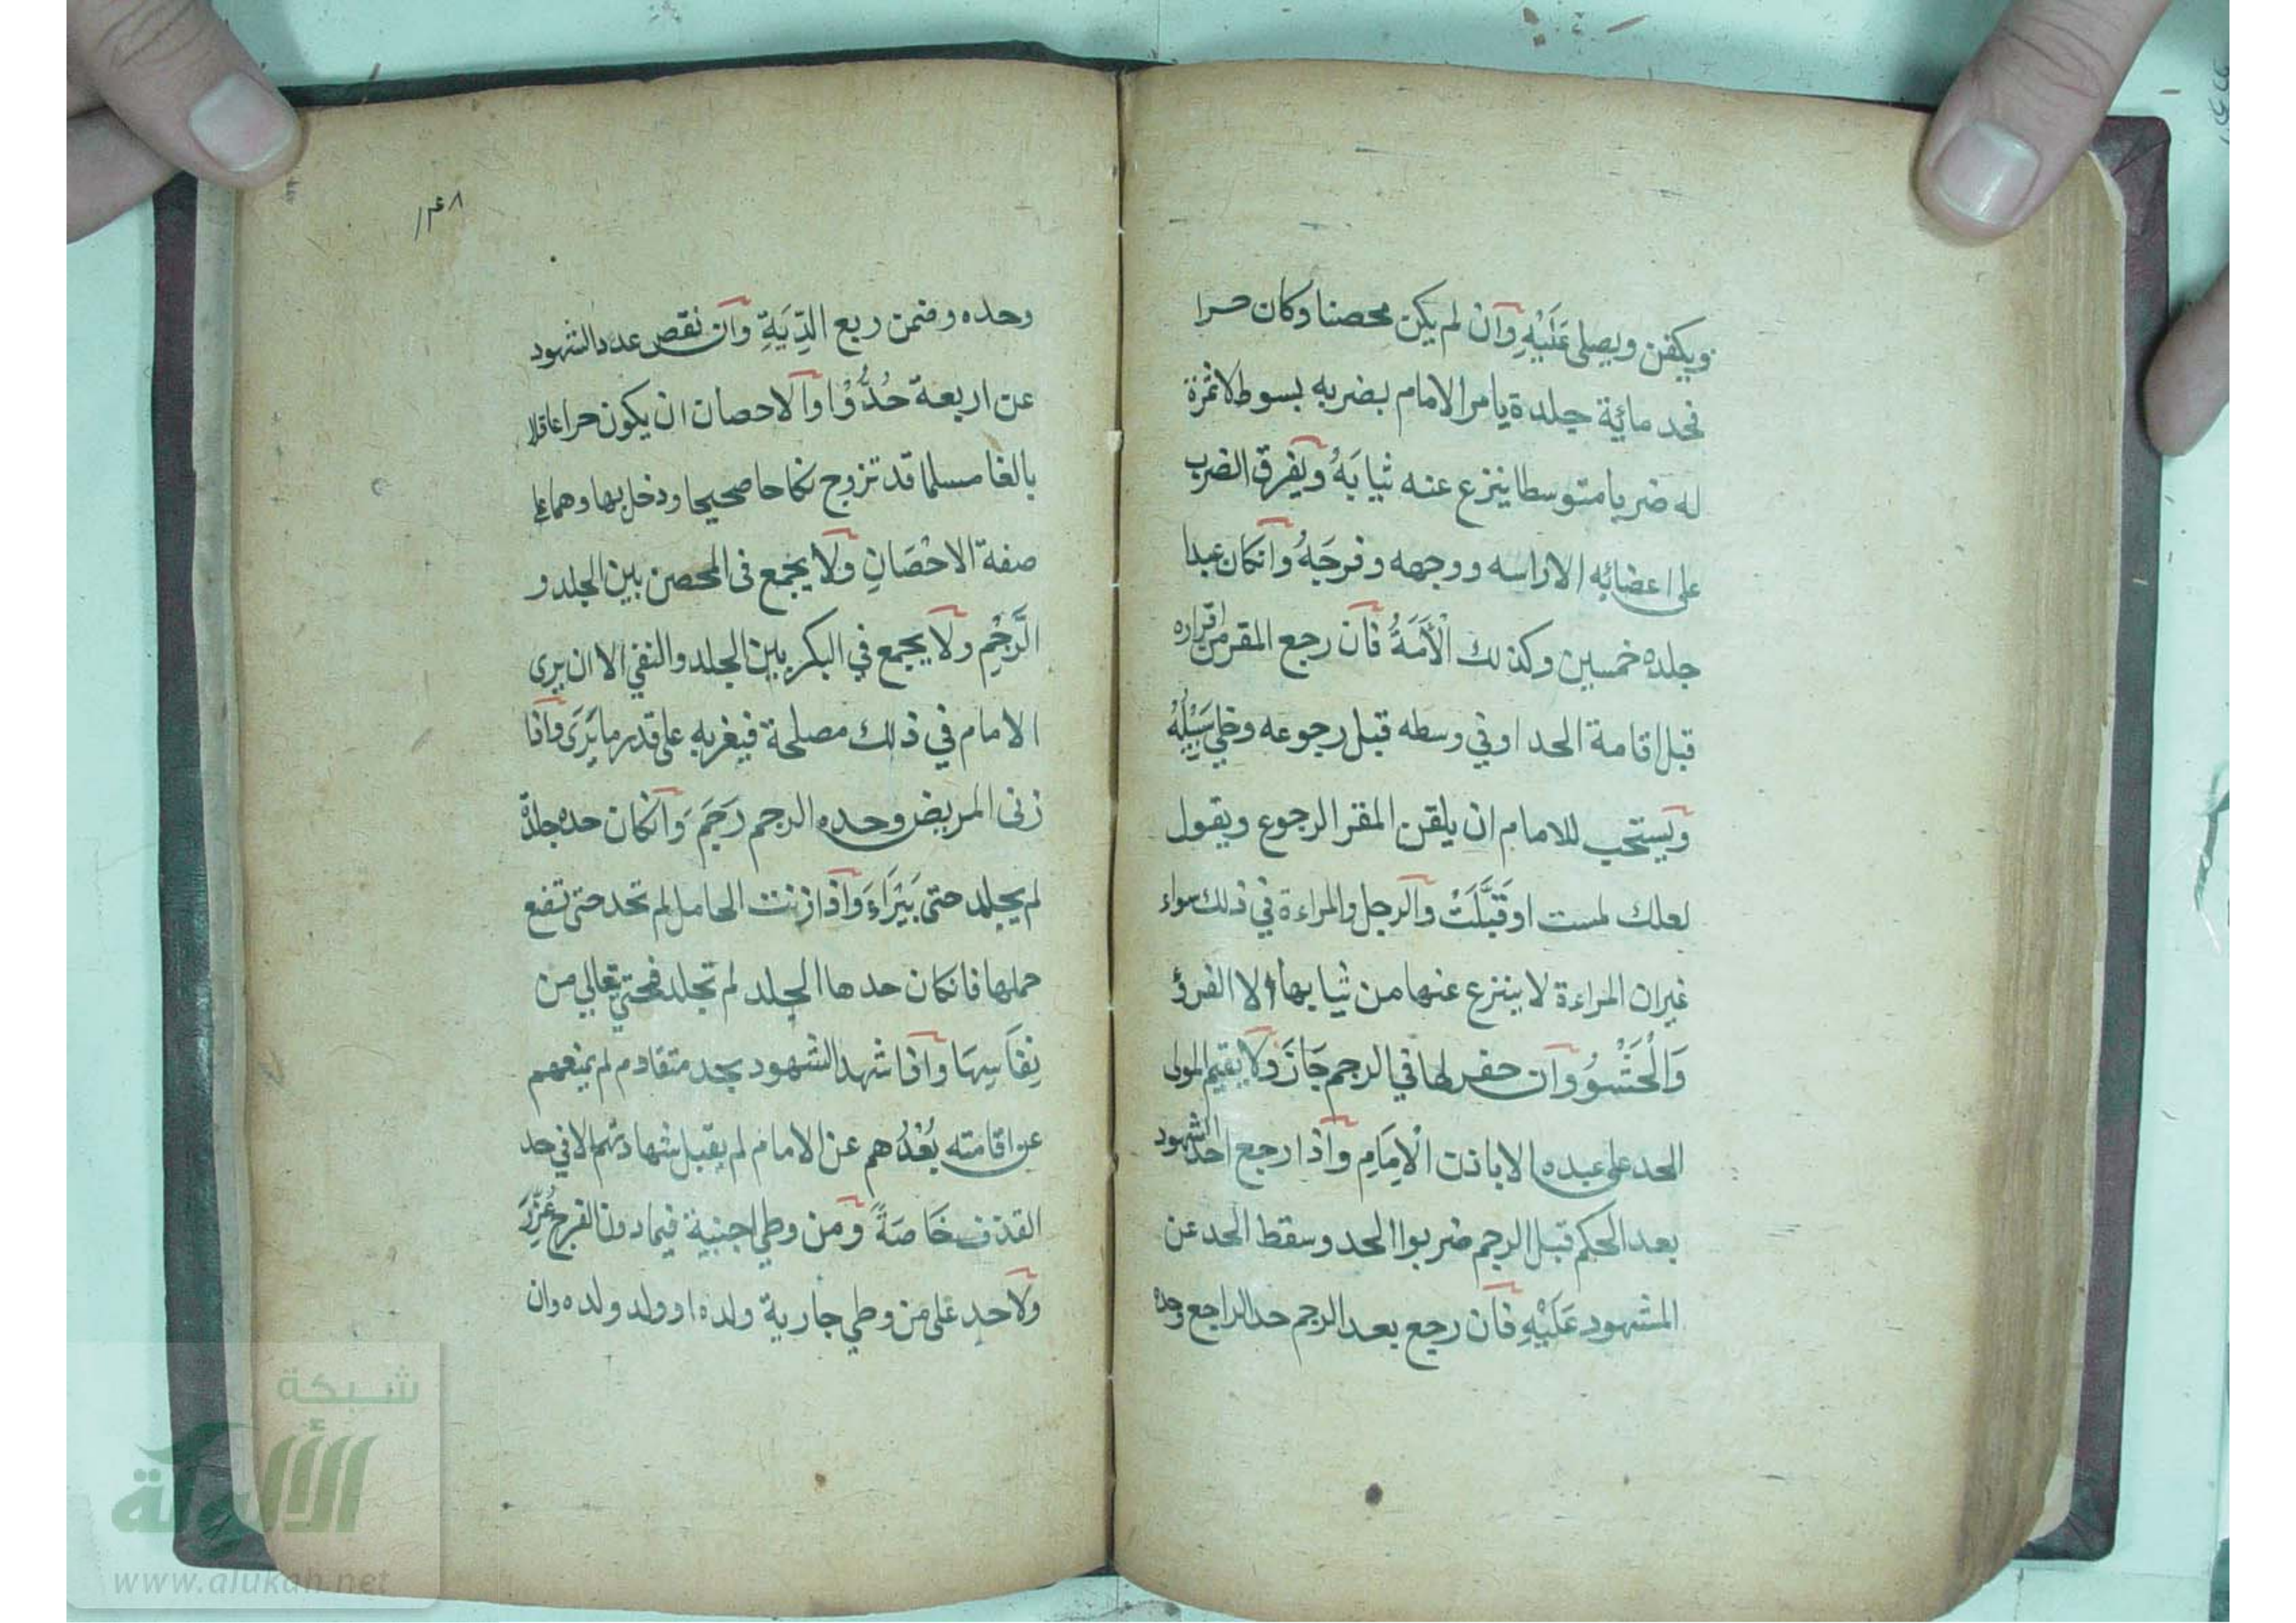 ويكفن ويصلى عَلَيْهِ وان لم يكن محصنا وكان حرا
فحد مائية جلدة يامر الامام بضربه بسوط لا ثمرة
له ضربا متوسطا ينزع عنه ثيابَهُ ويفرق الضرب
على اعضائه الا راسه ووجهه وفرجَهُ وانكان عبدا
جلده خمسين وكذلك الْأَمَةُ فان رجع المقر من اقراره
قبل اقامة الحد اوفي وسطه قبل رجوعه وخلي سَبِيْلُهُ
ويستحب للامام ان يلقن المقر الرجوع ويقول
لعلك لمست او قَبَّلَتْ والرجل والمراءة في ذلك سواء
غيران المراءة لا ينزع عنها من ثيابها الا الفرؤ
وَالْحَشْوُ وان حفر لها في الرجم جَازَ ولا يقيم المولى
الحد على عبده الا باذن الْاِمَامِ واذا رجع احد الشهود
بعد الحكم قبل الرجم ضربوا الحد وسقط الحد عن
المشهود عَلَيْهِ فان رجع بعد الرجم حد الراجع وحده
١٤٨
وحده وضمن ربع الدِّيَةِ وان نقص عدد الشهود
عن اربعة حُدُّوْا والاحصان ان يكون حرا عاقلا
بالغا مسلما قد تزوج نكاحا صحيحا ودخل بها وهما على
صفة الاحْصَانِ ولا يجمع فى المحصن بين الجلد و
الرَّجْمِ ولا يجمع في البكر بين الجلد والنفي الا ان يرى
الامام في ذلك مصلحة فيغربه على قدر ما يَرَى واذا
زنى المريض وحده الرجم رَجَمَ وَانكان حده جلدة
لم يجلد حتى يَبْرَاءَ وَاذا زنت الحامل لم تحد حتى تضع
حملها فانكان حدها الجلد لم تجلد فحتى تعالي من
نِفَاسِهَا واذا شهد الشهود بحد متقادم لم يمنعهم
عن اقامته بُعْدُهم عن الامام لم يقبل شهادتهم الا في حد
القذف خَاصَةً ومن وطي اجنبية فيما دون الفرج عُزِّرَ
ولا حد على من وطي جارية ولده او ولد ولده وان
شبكة
الألوكة
www.alukah.net